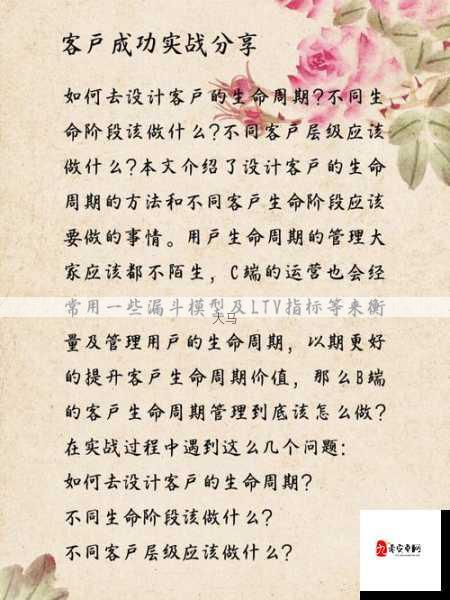 客户成功实战分享
如何去设计客户的生命周期?不同生
命阶段该做什么?不同客户层级应该
做什么?本文介绍了设计客户的生命
周期的方法和不同客户生命阶段应该
要做的事情。用户生命周期的管理大
家应该都不陌生，C端的运营也会经
常用一些漏斗模型及LTV指标等来衡
大马
量及管理用户的生命周期，以期更好
的提升客户生命周期价值，那么B端
的客户生命周期管理到底该怎么做?
在实战过程中遇到这么几个问题:
如何去设计客户的生命周期?
不同生命阶段该做什么?
不同客户层级应该做什么?